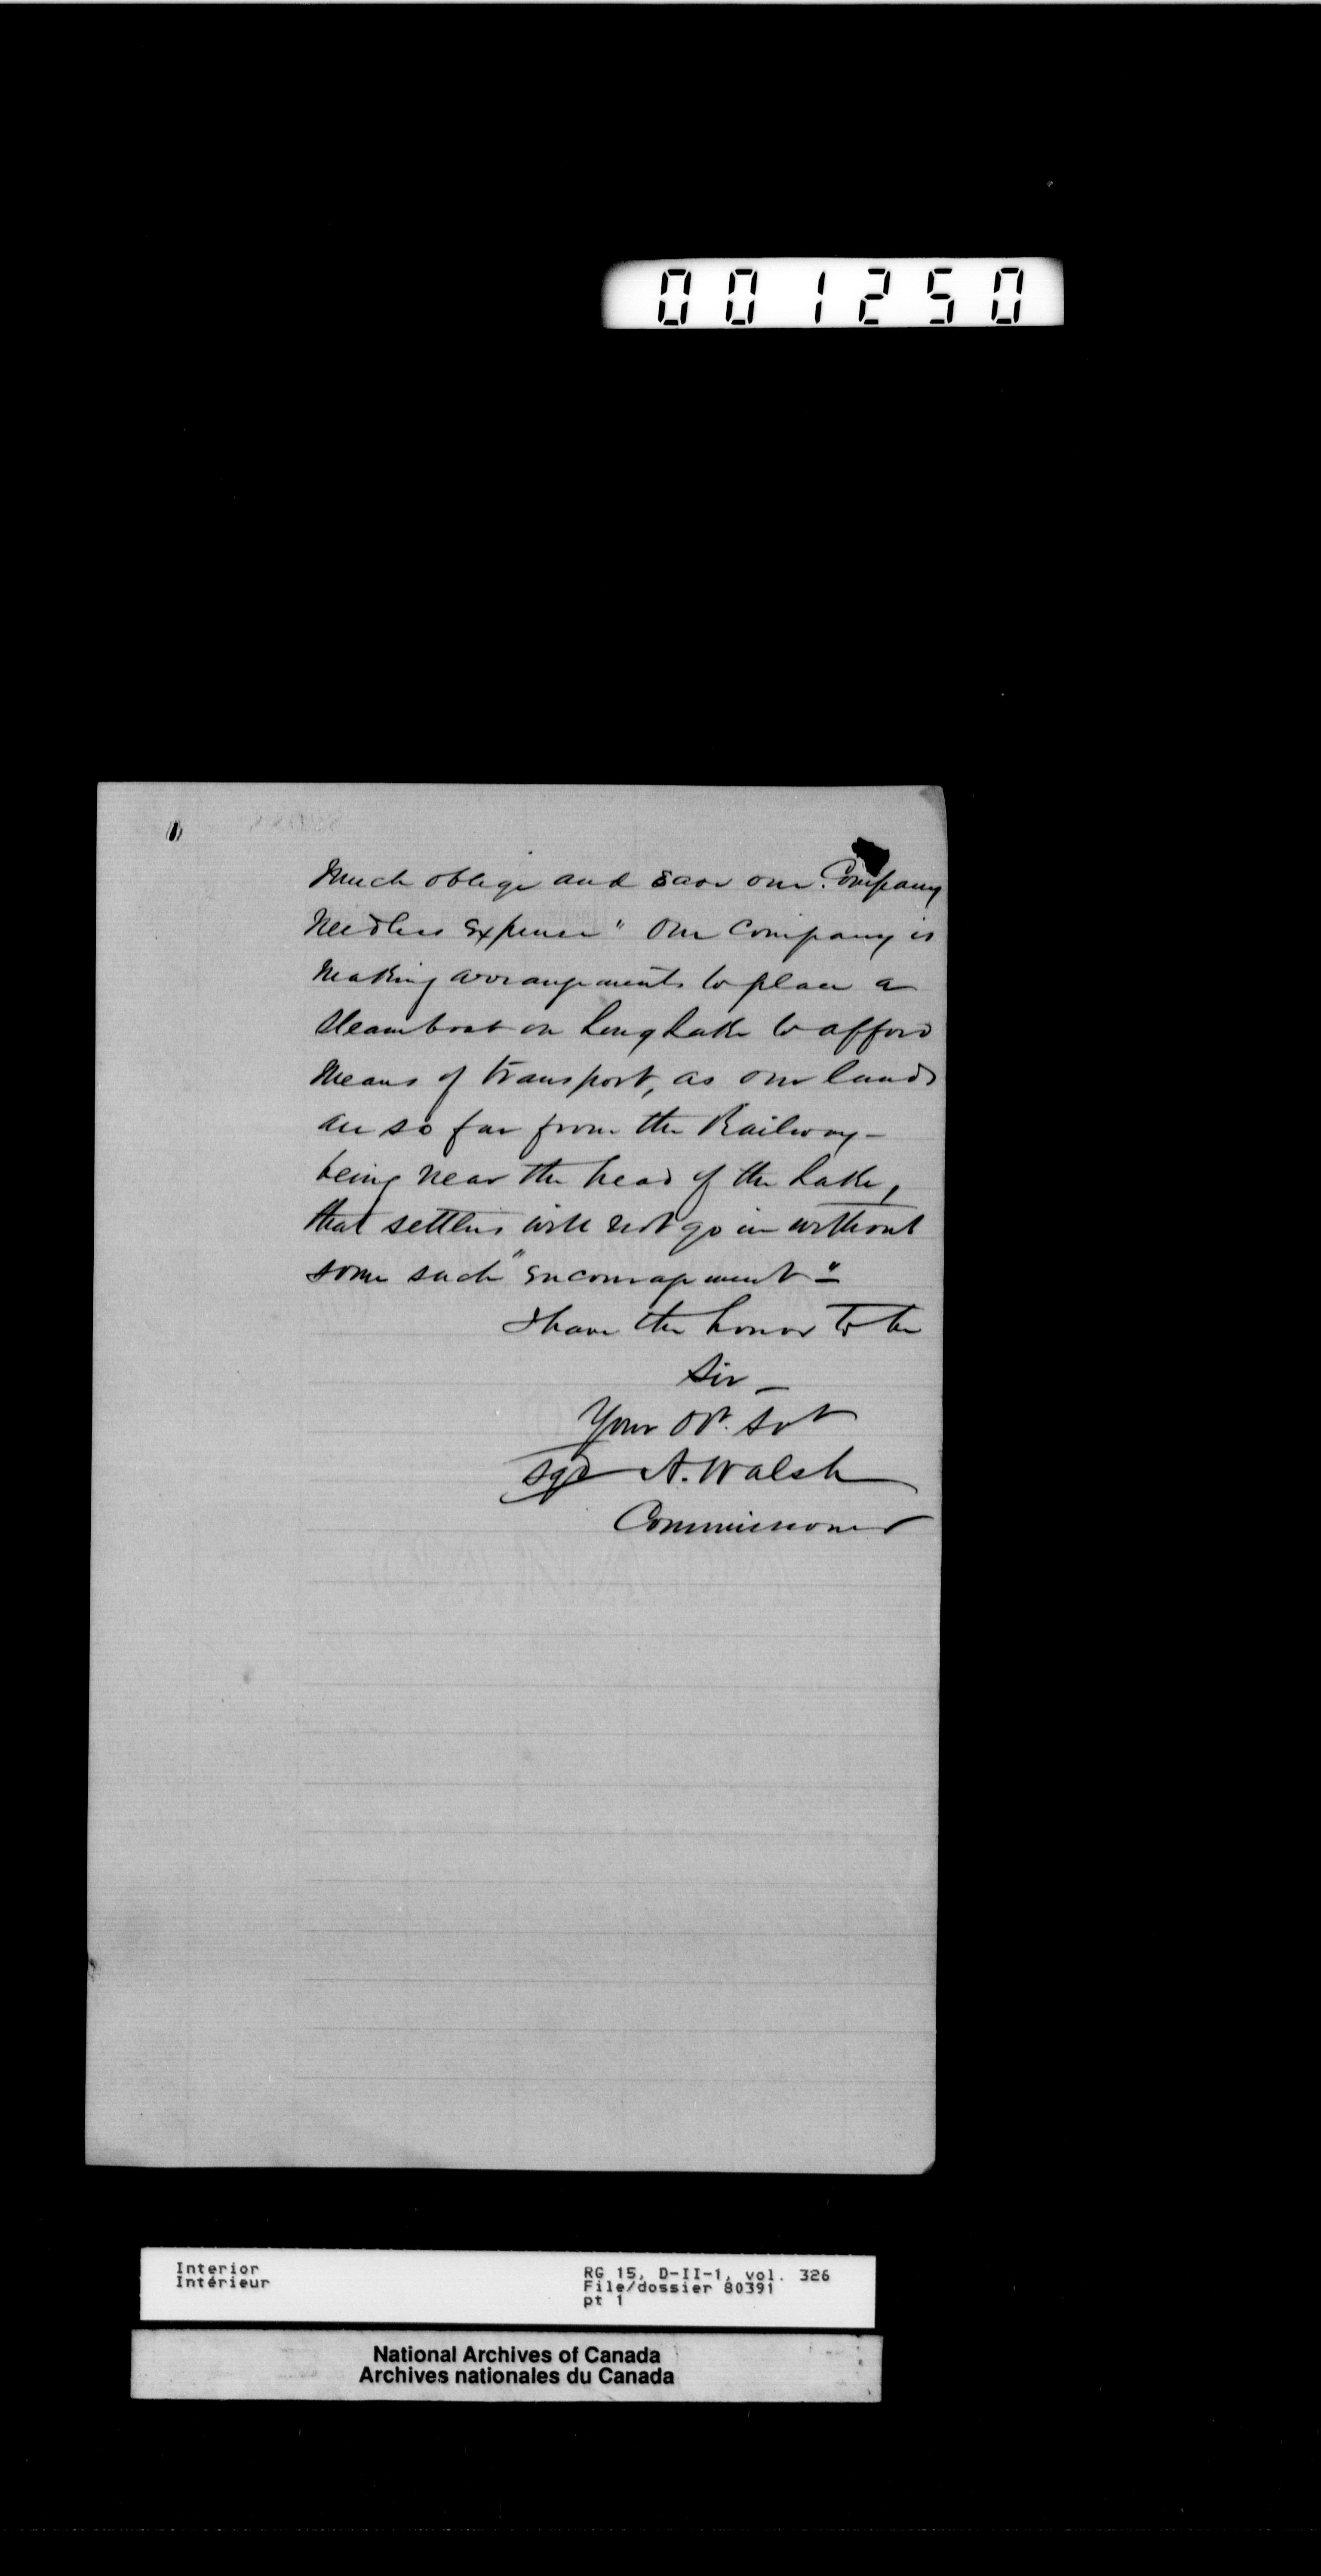 001250
Much oblige and save our Company
Needless Expense" Our Company is
Making arrangements to place a
Steamboat on Long Lake to afford
Means of transport, as our lands
are so far from the Railway -
being near the head of the Lake,
that settlers will not go in without
some such "Encouragement" -
I have the honor to be
Sir -
Your Obt. Svt
sgd A. Walsh
Commissioner
Interior
Intérieur
RG 15, D-II-1, vol. 326
File/dossier 80391
pt 1
National Archives of Canada
Archives nationales du Canada